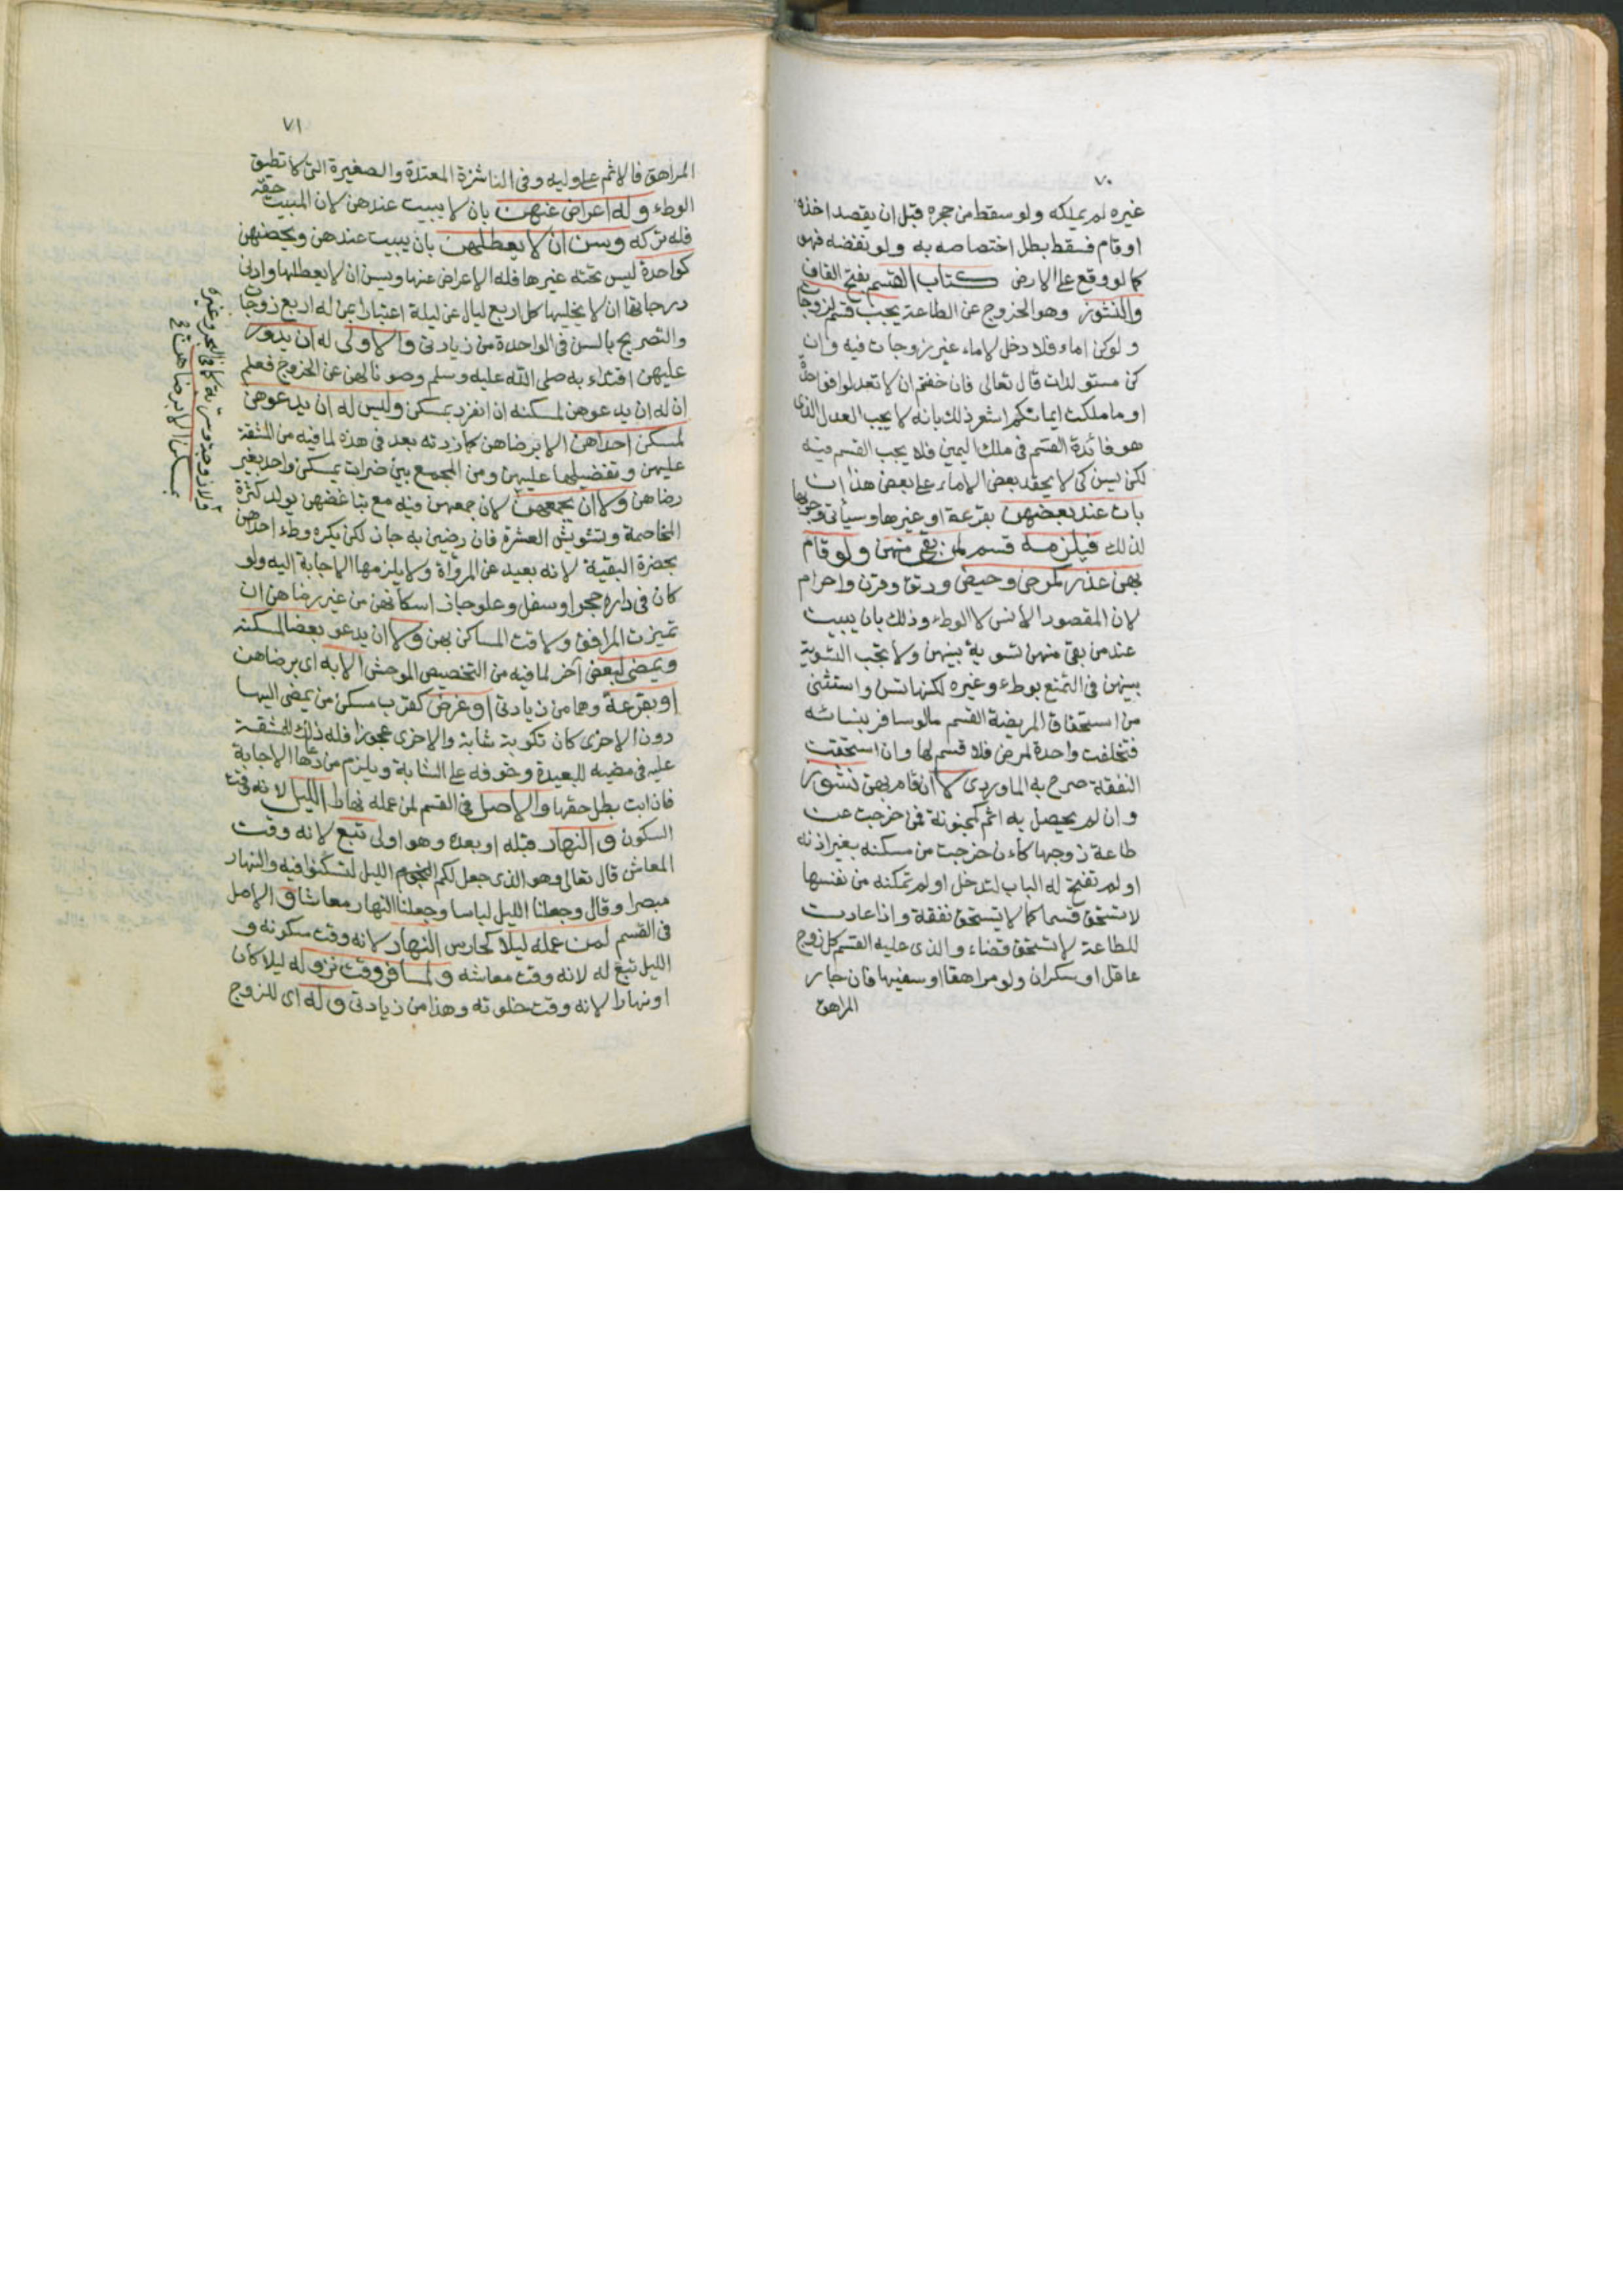 ٧٠
غيره لم يملكه ولو سقط من حجره قبل ان يقصد اخذه
او قام فسقط بطل اختصاصه به ولو نفضه فهو
كما لو وقع على الارض كتاب القسم بفتح القاف
والنشوز وهو الخروج عن الطاعة يجب قسم لزوجات
ولو كن اماء فلا دخل لاماء غير زوجات فيه وان
كن مستولدات قال تعالى فان خفتم ان لا تعدلوا فواحدة
او ما ملكت ايمانكم اشعر ذلك بانه لا يجب العدل الذى
هو فائدة القسم فى ملك اليمين فلا يجب القسم فيه
لكن يسن كى لا يحقد بعض الاماء على بعض هذا ان
بات عند بعضهن بقرعة او غيرها وسيأتى وجوبها
لذلك فيلزمه قسم لمن بقى منهن ولو قام
بهن عذر كمرض وحيض ورتق وقرن واحرام
لان المقصود الانس لا الوطء وذلك بان يبيت
عند من بقى منهن تسوية بينهن ولا تجب التسوية
بينهن فى التمتع بوطء وغيره لكنها تسن واستثنى
من استحقاق المريضة القسم ما لو سافر بنسائه
فتخلفت واحدة لمرض فلا قسم لها وان استحقت
النفقة صرح به الماوردى لا ان قام بهن نشوز
وان لم يحصل به اثم كمجنونة فمن خرجت عن
طاعة زوجها كأن خرجت من مسكنه بغير اذنه
او لم تفتح له الباب ليدخل او لم تمكنه من نفسها
لا تستحق قسما كما لا تستحق نفقة واذا عادت
للطاعة لا تستحق قضاء والذى عليه القسم كل زوج
عاقل او سكران ولو مراهقا او سفيها فان جار
المراهق
٧١
المراهق فالاثم على وليه وفى الناشزة المعتدة والصغيرة التى لا تطيق
الوطء وله اعراض عنهن بان لا يبيت عندهن لان المبيت حقه
فله تركه ويسن ان لا يعطلهن بان يبيت عندهن ويحصنهن
كواحدة ليس تحته غيرها فله الاعراض عنها ويسن ان لا يعطلها وادنى
درجاتها ان لا يخليها كل اربع ليال عن ليلة اعتبارا بمن له اربع زوجات
والتصريح بالسن فى الواحدة من زيادتى والاولى له ان يدور
عليهن اقتداء به صلى الله عليه وسلم وصونا لهن عن الخروج فعلم
ان له ان يدعوهن لمسكنه ان انفرد بمسكن وليس له ان يدعوهن
لمسكن احداهن الا برضاهن كما زدته بعد فى هذه لما فيه من المشقة
عليهن وتفضيلها عليهن ومن الجمع بين ضرات بمسكن واحد بغير
رضاهن ولا ان يجمعهن لان جمعهن فيه مع تباغضهن يولد كثرة
المخاصمة وتشويش العشرة فان رضين به جاز لكن يكره وطء احداهن
بحضرة البقية لانه بعيد عن المروأة ولا يلزمها الاجابة اليه ولو
كان فى داره حجر او سفل وعلو جاز اسكانهن من غير رضاهن ان
تميزت المرافق ولاقت المساكن بهن ولا ان يدعو بعضا لمسكنه
ويمضى لبعض آخر لما فيه من التخصيص الموحش الا به اى برضاهن
او بقرعة وهما من زيادتى او غرض كقرب مسكن من يمضى اليها
دون الاخرى كان تكون شابة والاخرى عجوزا فله ذلك للمشقة
عليه فى مضيه للبعيدة وخوفه على الشابة ويلزم من دعاها الاجابة
فان ابت بطل حقها والاصل فى القسم لمن عمله نهارا الليل لانه وقت
السكون والنهار قبله او بعده وهو اولى تبع لانه وقت
المعاش قال تعالى وهو الذى جعل لكم الليل لتسكنوا فيه والنهار
مبصرا وقال وجعلنا الليل لباسا وجعلنا النهار معاشا والاصل
فى القسم لمن عمله ليلا كحارس النهار لانه وقت سكونه و
الليل تبع له لانه وقت معاشه ولمسافر وقت نزوله ليلا كان
او نهارا لانه وقت خلوته وهذا من زيادتى وله اى للزوج